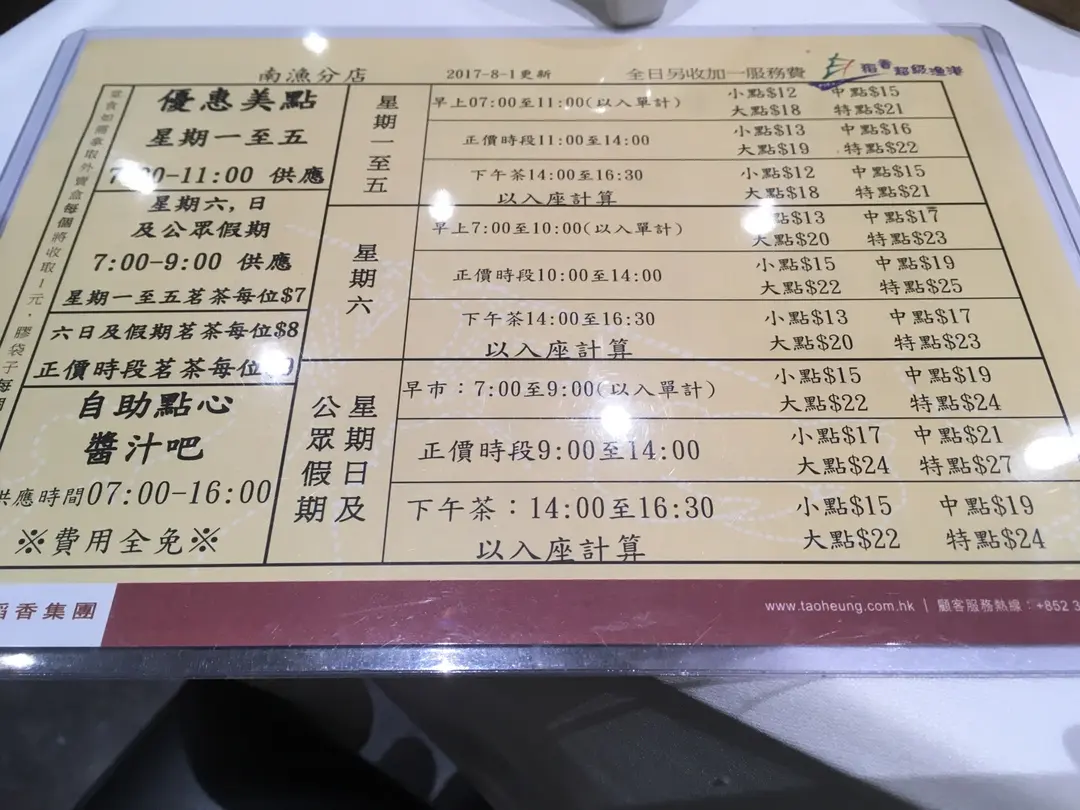 南漁分店 2017-8-1更新 全日另收加一服務費 稻香 超級漁港
優惠美點
星期一至五
7:00-11:00 供應
星期六,日
及公眾假期
7:00-9:00 供應
星期一至五茗茶每位$7
六日及假期茗茶每位$8
正價時段茗茶每位
自助點心
醬汁吧
供應時間07:00-16:00
※費用全免※
星期一至五
早上07:00至11:00(以入單計) 小點$12 中點$15
大點$18 特點$21
正價時段11:00至14:00 小點$13 中點$16
大點$19 特點$22
下午茶14:00至16:30 小點$12 中點$15
以入座計算 大點$18 特點$21
星期六
早上7:00至10:00(以入單計) 小點$13 中點$17
大點$20 特點$23
正價時段10:00至14:00 小點$15 中點$19
大點$22 特點$25
下午茶14:00至16:30 小點$13 中點$17
以入座計算 大點$20 特點$23
星期日及
公眾假期
早市:7:00至9:00(以入單計) 小點$15 中點$19
大點$22 特點$24
正價時段9:00至14:00 小點$17 中點$21
大點$24 特點$27
下午茶:14:00至16:30 小點$15 中點$19
以入座計算 大點$22 特點$24
當食如需拿取外賣盒每個將收取1元,膠袋子每
稻香集團
www.taoheung.com.hk | 顧客服務熱線:+852 3